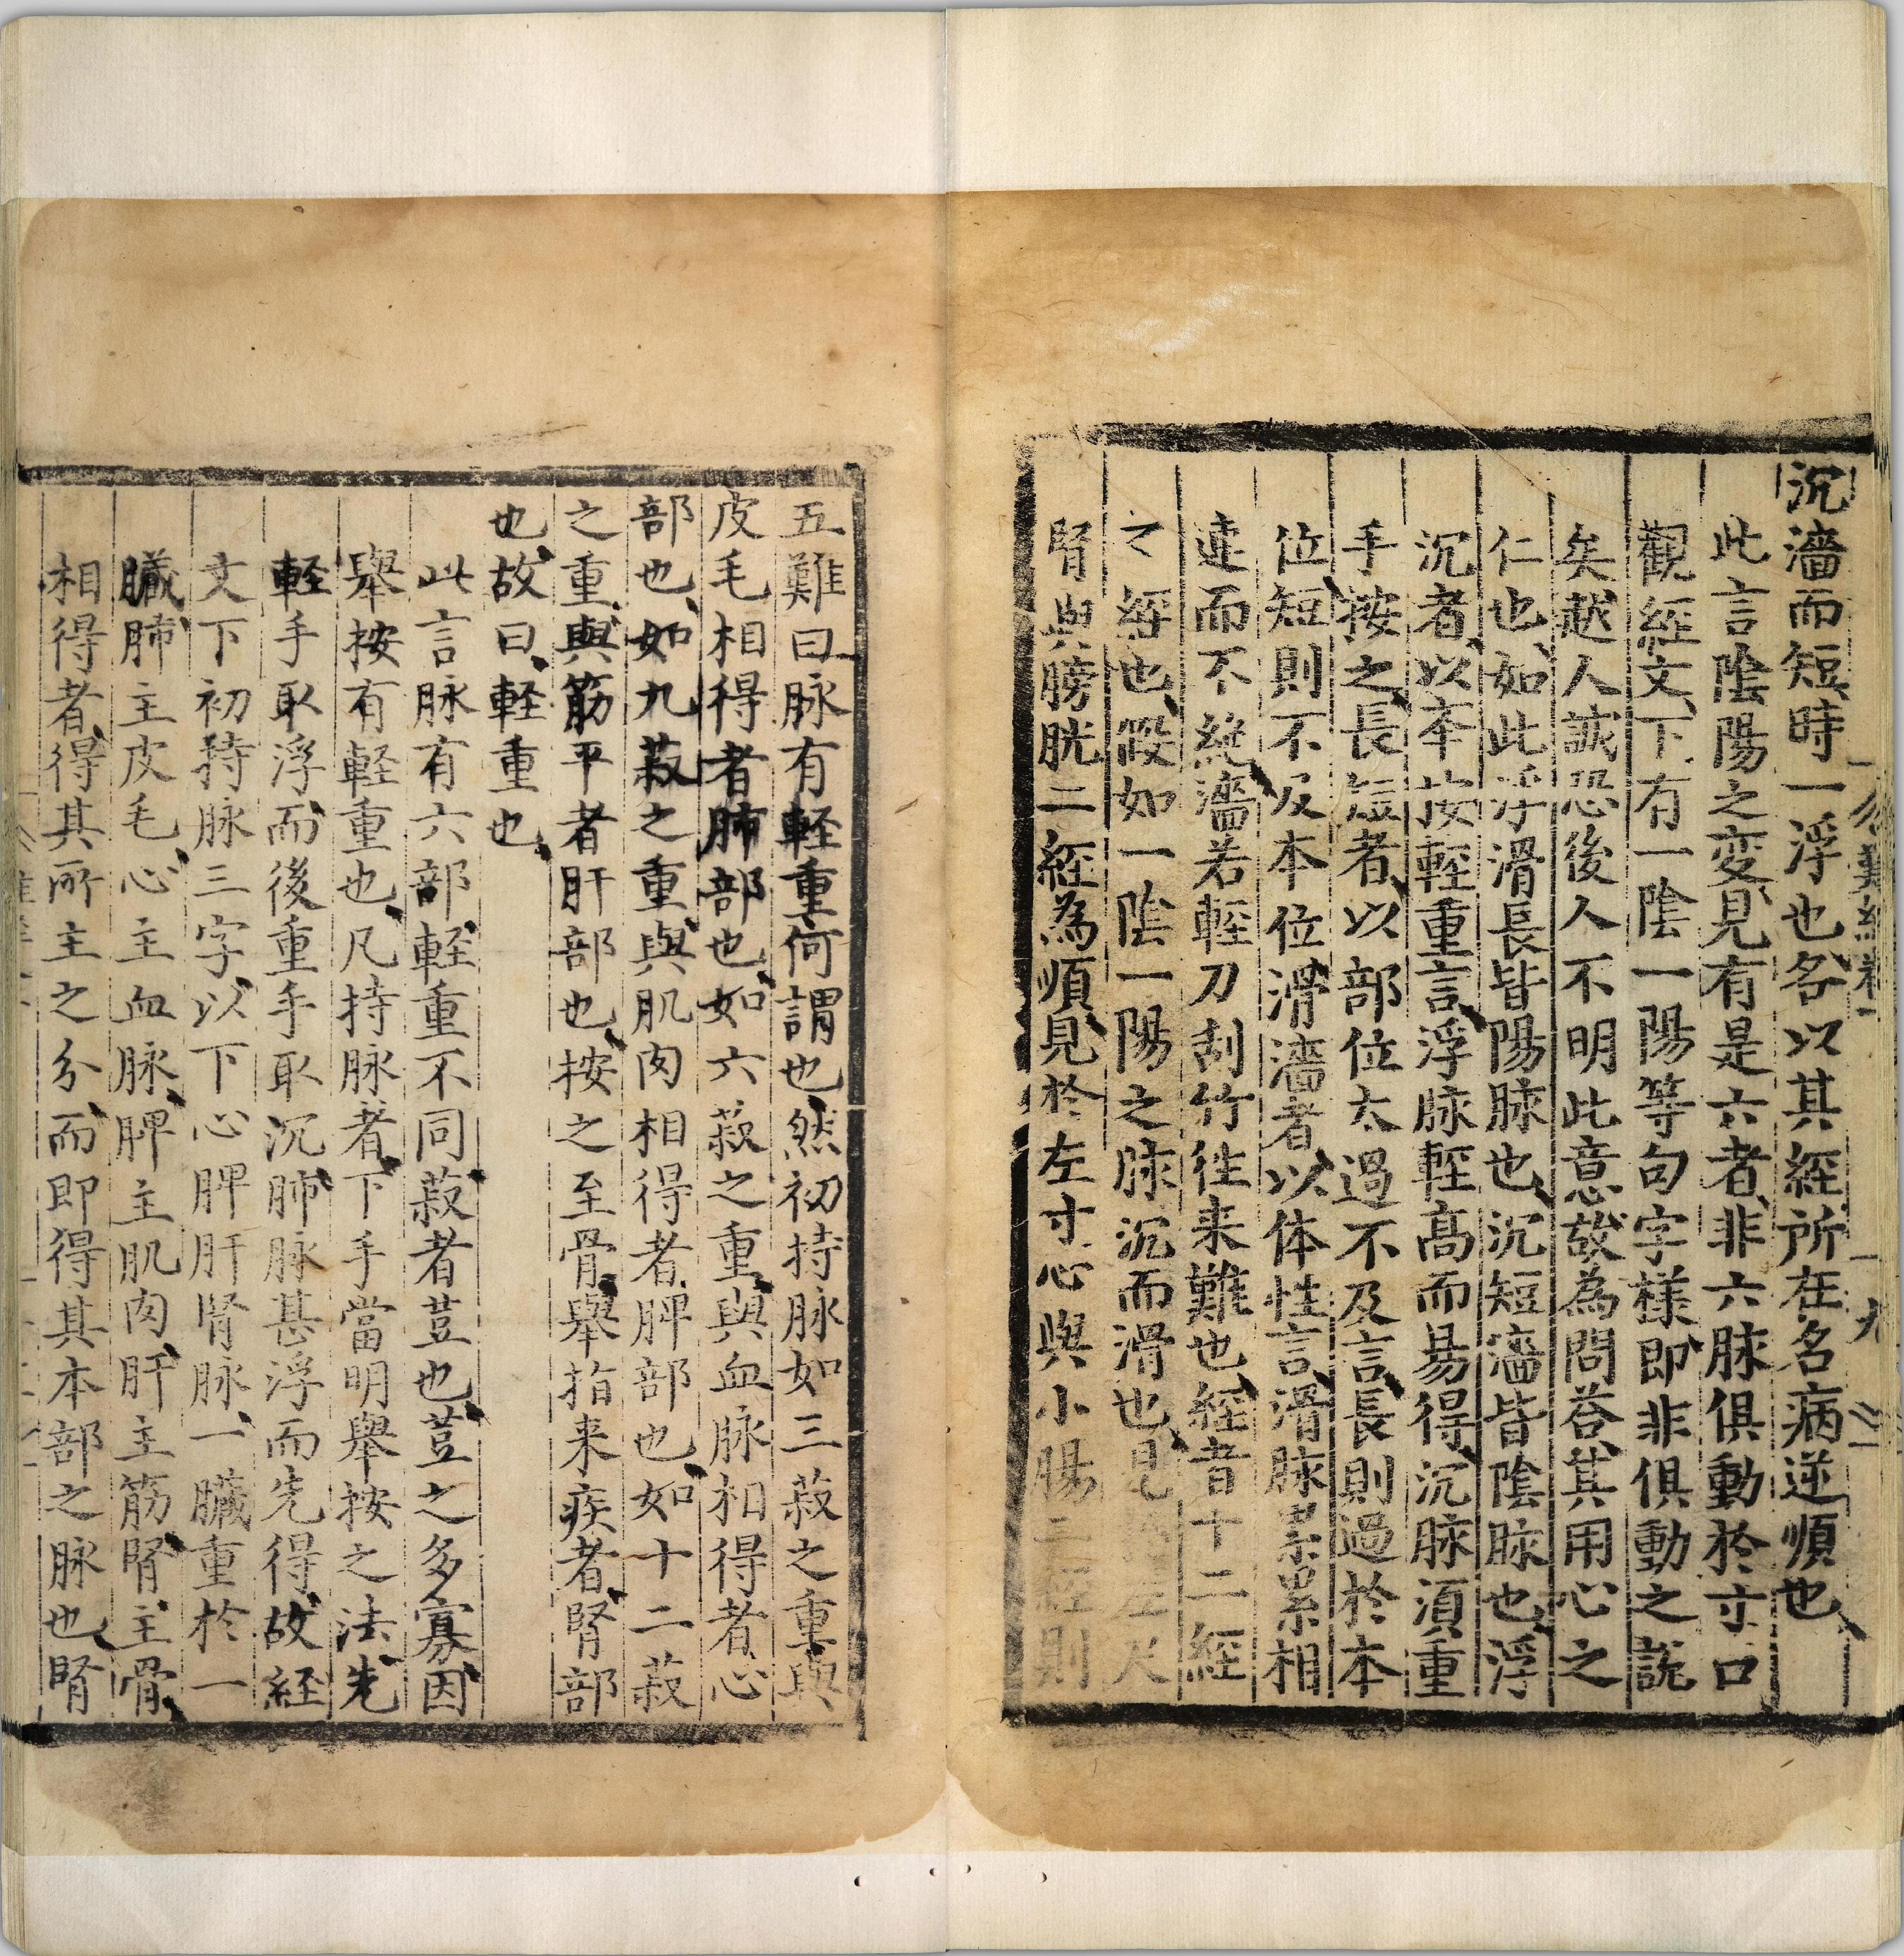 沉濇而短時一浮也各以其經所在名病逆順也
此言陰陽之变見有是六者非六脉俱動於寸口
觀經文下有一陰一陽等句字樣即非俱動之說
矣越人誠恐後人不明此意故為問荅其用心之
仁也如此浮滑長皆陽脉也沉短濇皆陰脉也浮
沉者以本按輕重言浮脉輕髙而易得沉脉湏重
手按之長短者以部位太過不及言長則過於本
位短則不及本位滑濇者以体性言滑脉累累相
連而不絕濇若輕刀刮竹徃来難也經者十二經
之經也叚如一陰一陽之脉沉而滑也見尺
腎與膀胱二經為順見於左寸心與小腸二經則
五難曰脉有輕重何謂也然初持脉如三菽之重與
皮毛相得者肺部也如六菽之重與血脉相得者心
部也如九菽之重與肌肉相得者脾部也如十二菽
之重與筋平者肝部也按之至骨舉指来疾者腎部
也故曰輕重也
此言脉有六部輕重不同菽者荳也荳之多寡因
舉按有輕重也凡持脉者下手當明舉按之法先
輕手取浮而後重手取沉肺脉甚浮而先得故経
文下初持脉三字以下心脾肝腎脉一臟重於一
臟肺主皮毛心主血脉脾主肌肉肝主筋腎主骨
相得者得其所主之分而即得其本部之脉也腎